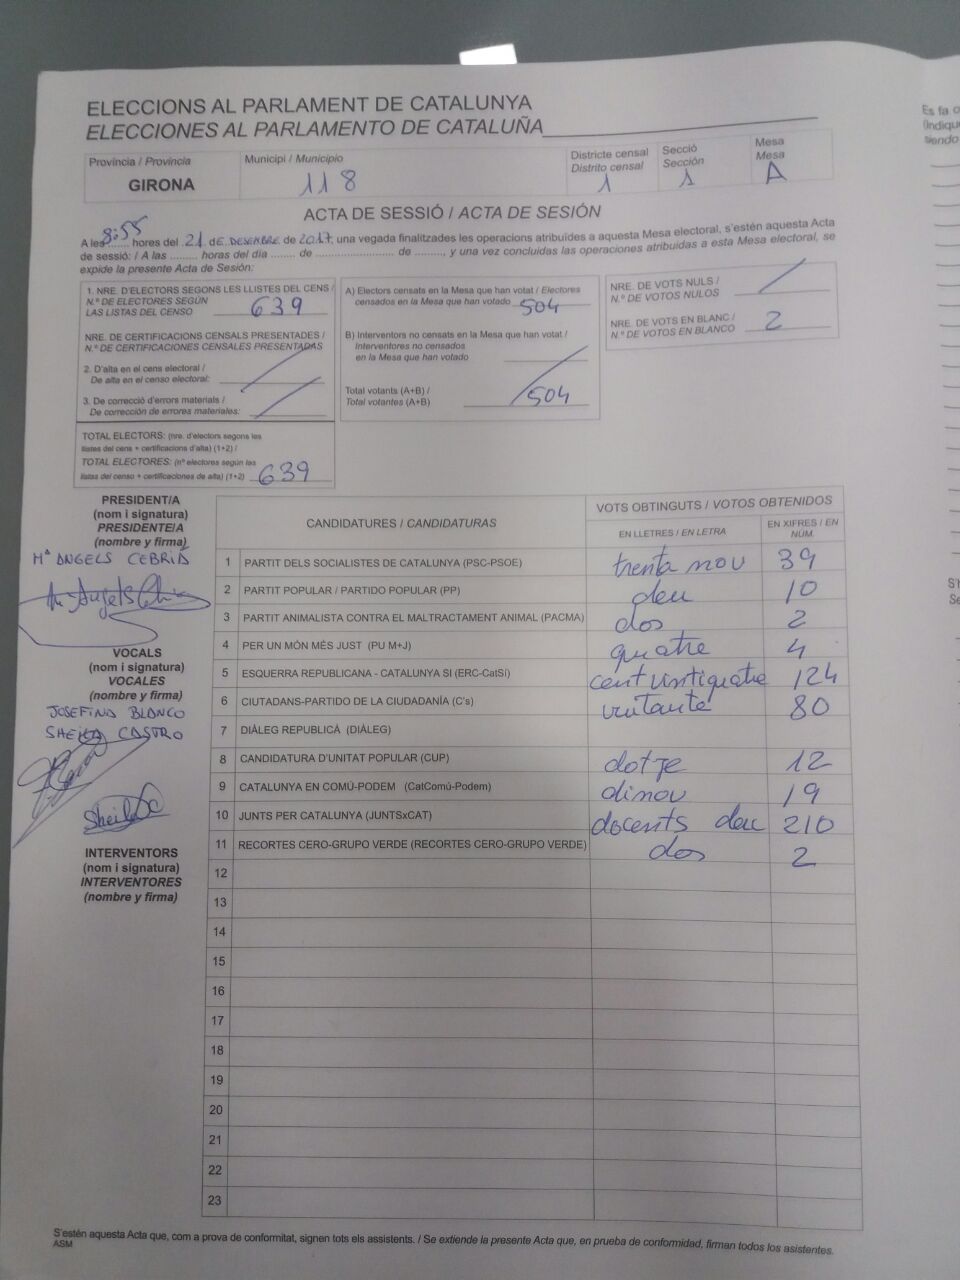 ELECCIONS AL PARLAMENT DE CATALUNYA
ELECCIONES AL PARLAMENTO DE CATALUÑA
Província / Provincia
GIRONA
Municipi / Municipio
118
Districte censal
Distrito censal
1
Secció
Sección
1
Mesa
Mesa
A
ACTA DE SESSIÓ / ACTA DE SESIÓN
A les 8:55 hores del 21 de DESEMBRE de 2017, una vegada finalitzades les operacions atribuïdes a aquesta Mesa electoral, s'estén aquesta Acta
de sessió: / A las ......... horas del día ........ de ........................ de ........., y una vez concluidas las operaciones atribuidas a esta Mesa electoral, se
expide la presente Acta de Sesión:
1. NRE. D'ELECTORS SEGONS LES LLISTES DEL CENS /
N.º DE ELECTORES SEGÚN
LAS LISTAS DEL CENSO 639
NRE. DE CERTIFICACIONS CENSALS PRESENTADES /
N.º DE CERTIFICACIONES CENSALES PRESENTADAS
2. D'alta en el cens electoral /
De alta en el censo electoral:
3. De correcció d'errors materials /
De corrección de errores materiales:
TOTAL ELECTORS: (nre. d'electors segons les
llistes del cens + certificacions d'alta) (1+2) /
TOTAL ELECTORES: (nº electores según las
listas del censo + certificaciones de alta) (1+2) 639
A) Electors censats en la Mesa que han votat / Electores
censados en la Mesa que han votado 504
B) Interventors no censats en la Mesa que han votat /
Interventores no censados
en la Mesa que han votado
Total votants (A+B) /
Total votantes (A+B) 504
NRE. DE VOTS NULS /
N.º DE VOTOS NULOS
NRE. DE VOTS EN BLANC /
N.º DE VOTOS EN BLANCO 2
PRESIDENT/A
(nom i signatura)
PRESIDENTE/A
(nombre y firma)
Mª ANGELS CEBRIÀ
VOCALS
(nom i signatura)
VOCALES
(nombre y firma)
JOSEFINA BLANCO
SHEILA CASTRO
INTERVENTORS
(nom i signatura)
INTERVENTORES
(nombre y firma)
CANDIDATURES / CANDIDATURAS
VOTS OBTINGUTS / VOTOS OBTENIDOS
EN LLETRES / EN LETRA
EN XIFRES / EN
NÚM.
1 PARTIT DELS SOCIALISTES DE CATALUNYA (PSC-PSOE) trenta nou 39
2 PARTIT POPULAR / PARTIDO POPULAR (PP) deu 10
3 PARTIT ANIMALISTA CONTRA EL MALTRACTAMENT ANIMAL (PACMA) dos 2
4 PER UN MÓN MÉS JUST (PU M+J) quatre 4
5 ESQUERRA REPUBLICANA - CATALUNYA SI (ERC-CatSí) cent vintiquatre 124
6 CIUTADANS-PARTIDO DE LA CIUDADANÍA (C's) vuitante 80
7 DIÀLEG REPUBLICÀ (DIÀLEG)
8 CANDIDATURA D'UNITAT POPULAR (CUP) dotze 12
9 CATALUNYA EN COMÚ-PODEM (CatComú-Podem) dinou 19
10 JUNTS PER CATALUNYA (JUNTSxCAT) docents deu 210
11 RECORTES CERO-GRUPO VERDE (RECORTES CERO-GRUPO VERDE) dos 2
12
13
14
15
16
17
18
19
20
21
22
23
S'estén aquesta Acta que, com a prova de conformitat, signen tots els assistents. / Se extiende la presente Acta que, en prueba de conformidad, firman todos los asistentes.
ASM